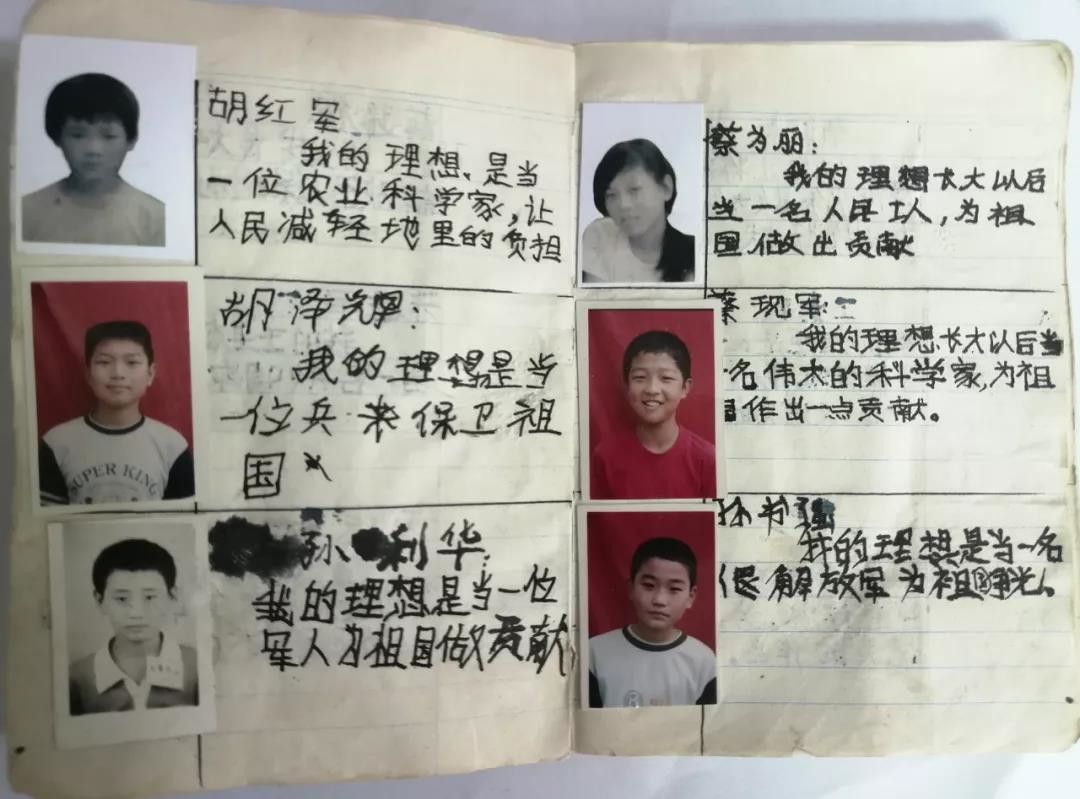 胡红军
我的理想、是当
一位农业科学家,让
人民减轻地里的负担
胡泽光:
我的理想是当
一位兵来保卫祖
国
SUPER KING
孙利华:
我的理想是当一位
军人为祖国做贡献
蔡为丽:
我的理想长大以后
当一名人民工人,为祖
国做出贡献
蔡现军:
我的理想长大以后当
名伟大的科学家,为祖
作出一点贡献。
孙为强
我的理想是当一名
解放军为祖国